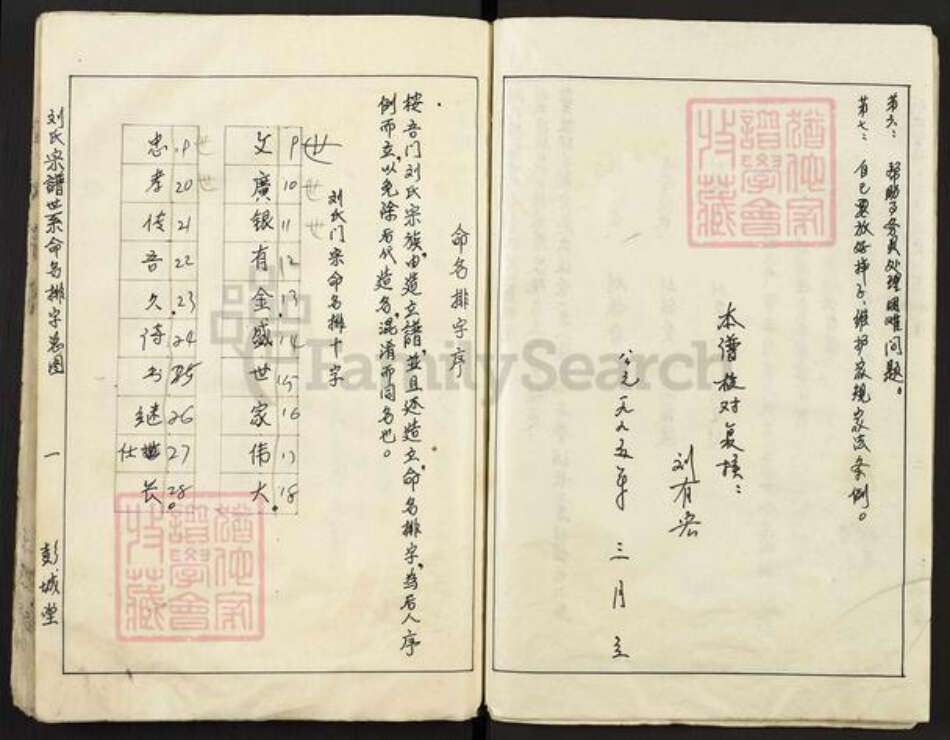 第六：帮助了务员处理困难问题。
第七：自己要放好样子，维护家规家法条例。
本谱校对复核：
刘有宏
公元一九九五年 三月 立
猶他家譜學會收藏
命名排字序
按吾门刘氏宗族，由造立譜，並且还造立命名排字，为后人序
例而立，以免除后代造名，混淆而同名也。
刘氏门宗命名排十字
文 9 世
廣 10 世
银 11 世
有 12
金 13
盛 14
世 15
家 16
伟 17
大 18
忠 19 世
孝 20 世
传 21
吾 22
久 23
诗 24
书 25
继 26
仕 27
长 28
猶他家譜學會收藏
刘氏宗譜世系命名排字总图 一 彭城堂
FamilySearch